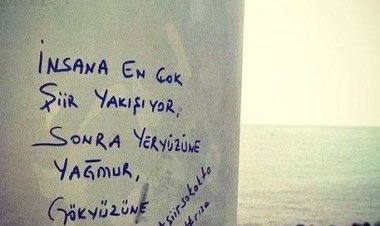 İNSANA EN ÇOK
ŞİİR YAKIŞIYOR,
SONRA YERYÜZÜNE
YAĞMUR,
GÖKYÜZÜNE